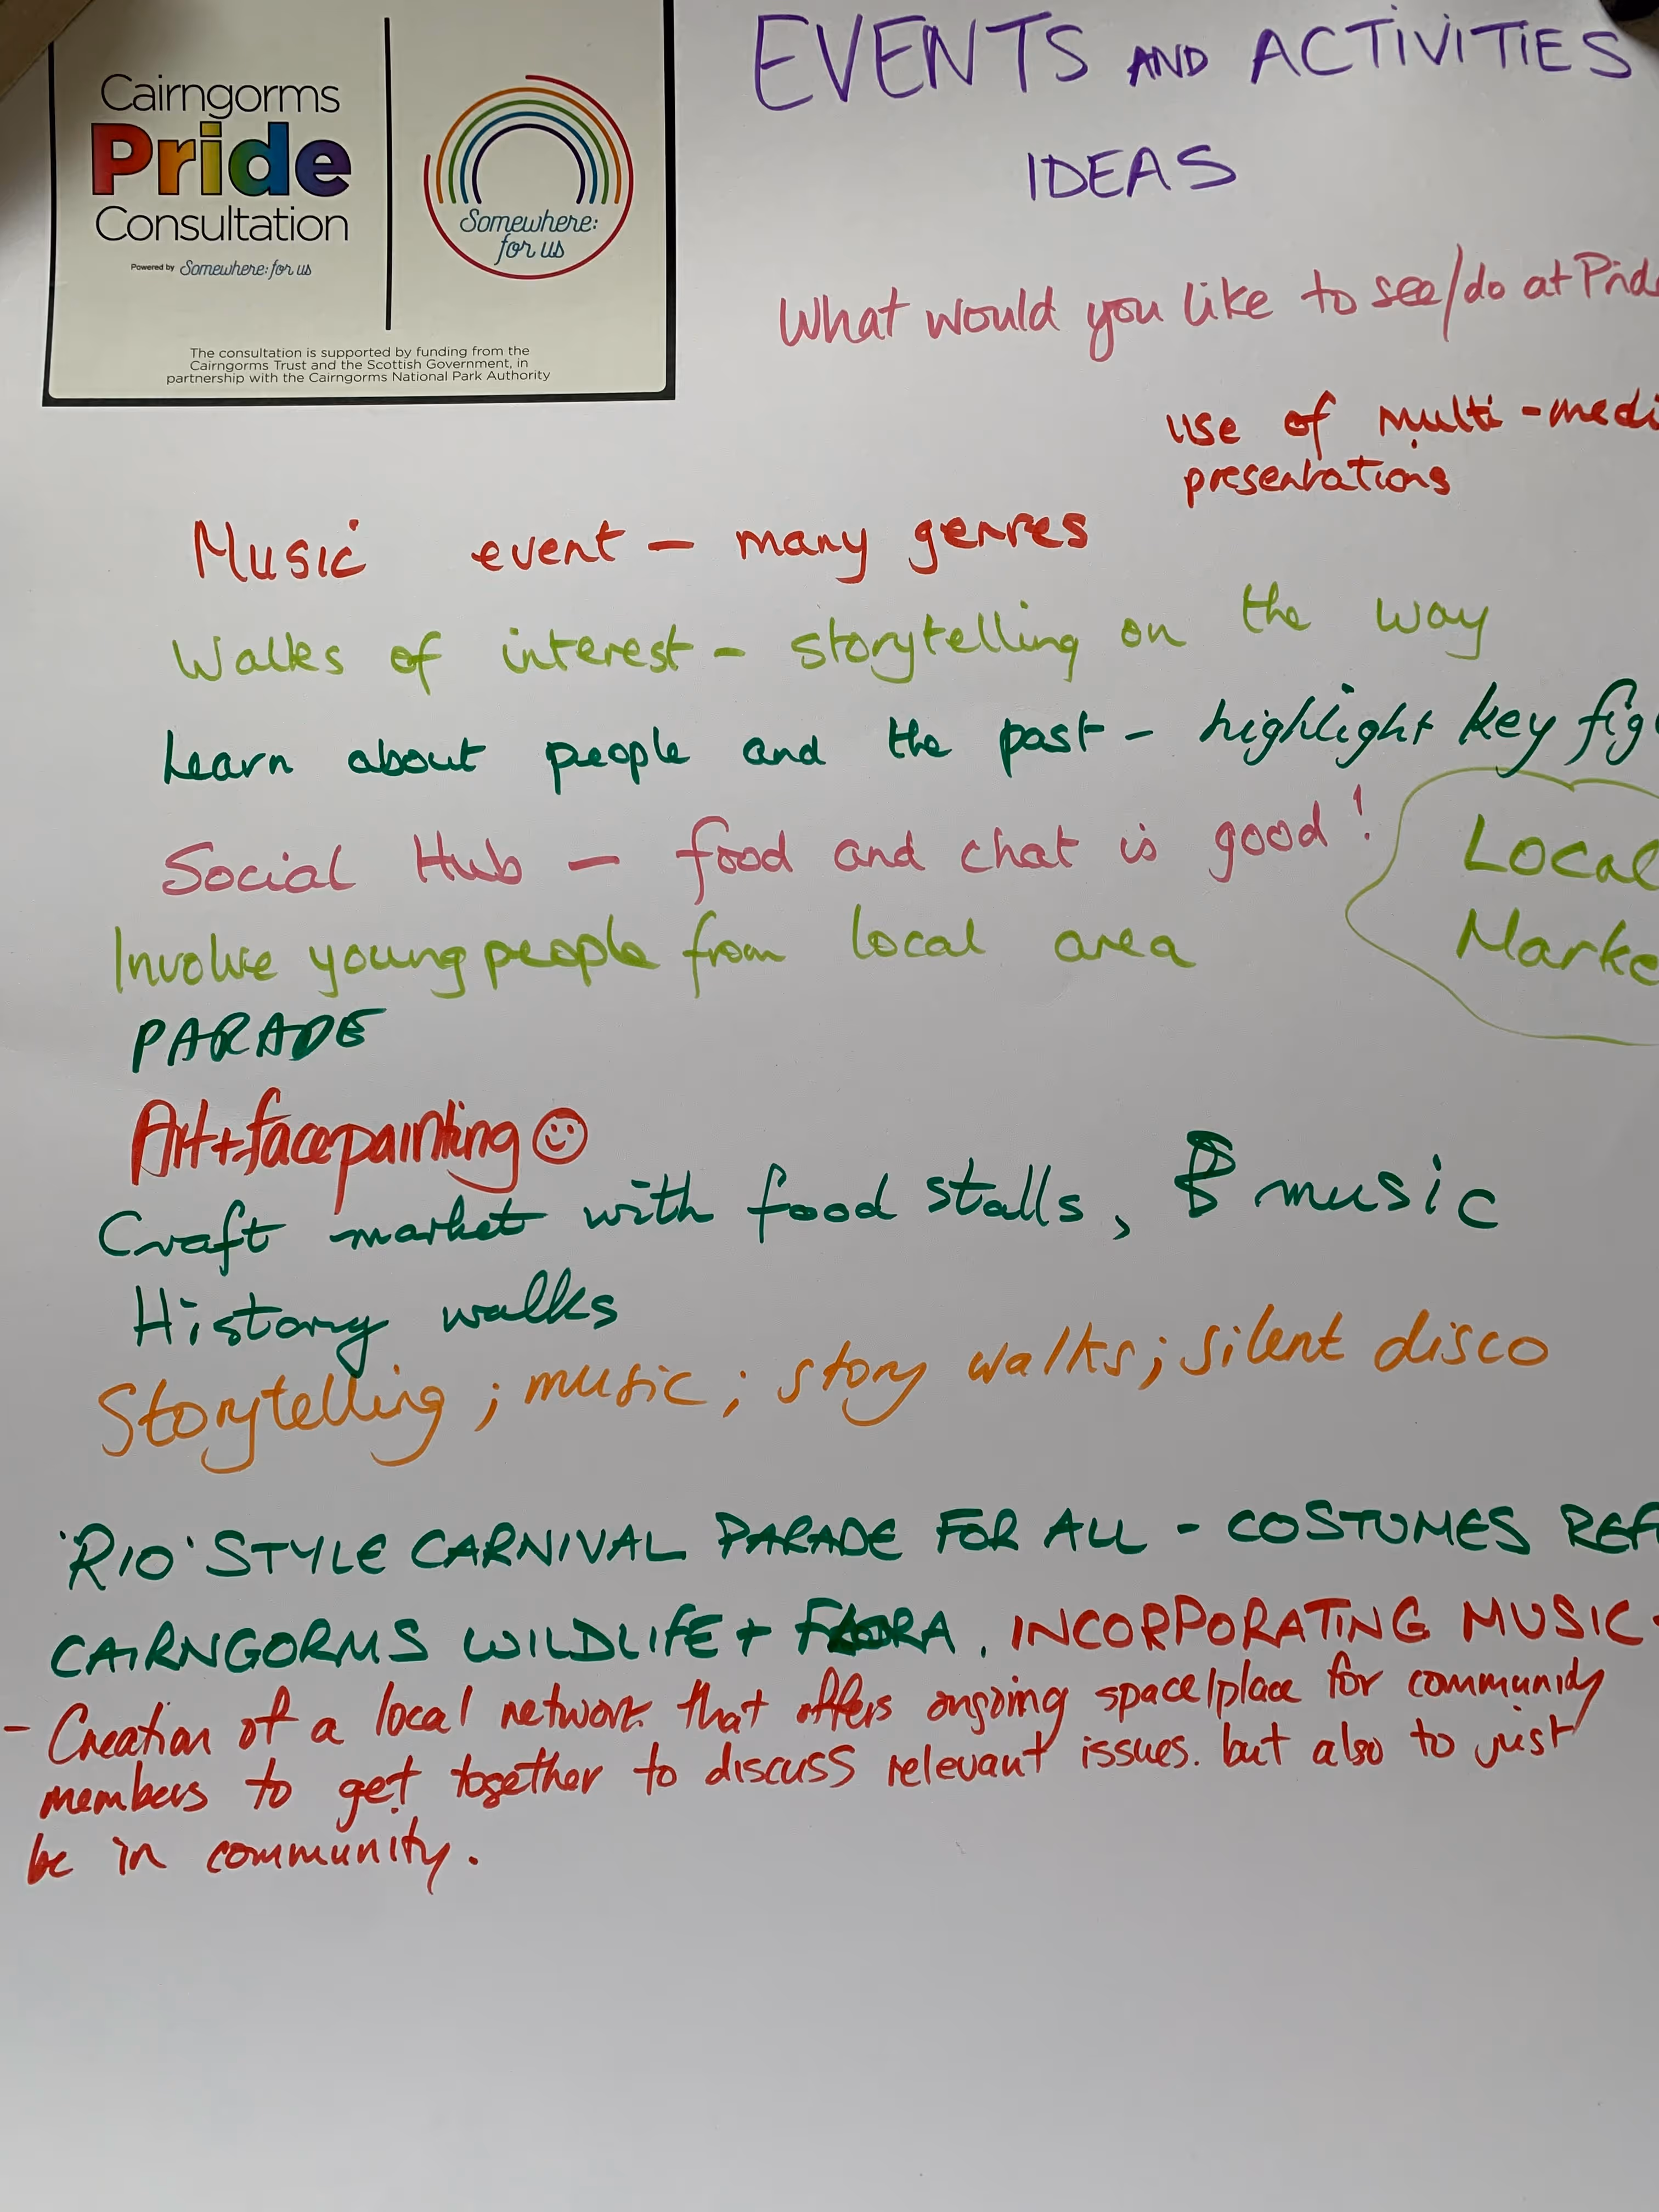 Cairngorms
Pride
Consultation
Powered by Somewhere: for us
Somewhere:
for us
The consultation is supported by funding from the
Cairngorms Trust and the Scottish Government, in
partnership with the Cairngorms National Park Authority
EVENTS AND ACTIVITIES
IDEAS
What would you like to see/do at Prid
use of multi-medi
presentations
Music event – many genres
Walks of interest – storytelling on the way
Learn about people and the past – highlight key fig
Social Hub – food and chat is good!
Local
Marke
Involve young people from local area
PARADE
Art+facepainting ☺
Craft market with food stalls, & music
History walks
Storytelling; music; story walks; silent disco
'RIO' STYLE CARNIVAL PARADE FOR ALL - COSTUMES REF
CAIRNGORMS WILDLIFE + FLORA. INCORPORATING MUSIC
- Creation of a local network that offers ongoing space/place for community
members to get together to discuss relevant issues. but also to just
be in community.